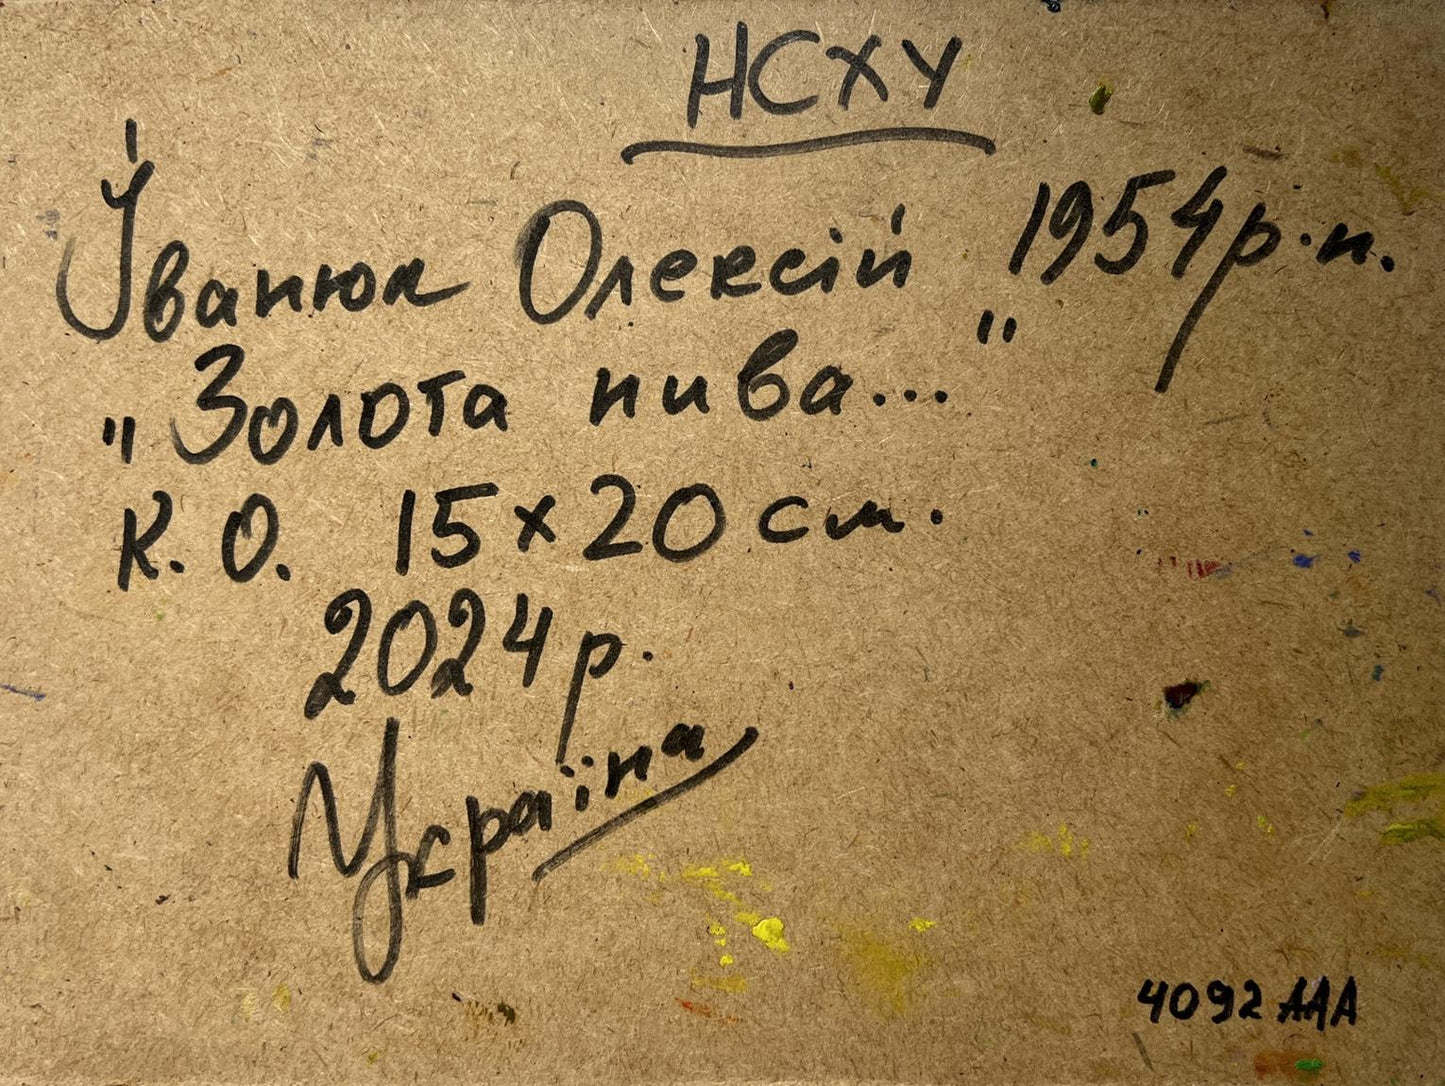 НСХУ
Іванюк Олексій 1954 р.н.
"Золота нива..."
К. О. 15 × 20 см.
2024 р.
Україна
4092 ААА